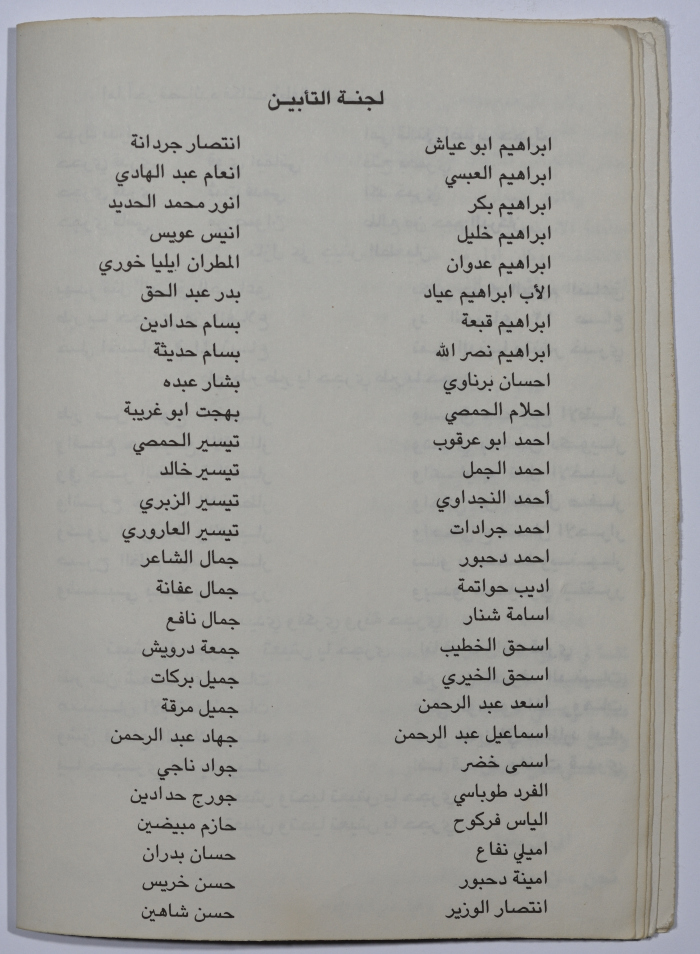 لجنة التأبين
ابراهيم ابو عياش
ابراهيم العبسي
ابراهيم بكر
ابراهيم خليل
ابراهيم عدوان
الأب ابراهيم عياد
ابراهيم قبعة
ابراهيم نصر الله
احسان برناوي
احلام الحمصي
احمد ابو عرقوب
احمد الجمل
أحمد النجداوي
احمد جرادات
احمد دحبور
اديب حواتمة
اسامة شنار
اسحق الخطيب
اسحق الخيري
اسعد عبد الرحمن
اسماعيل عبد الرحمن
اسمى خضر
الفرد طوباسي
الياس فركوح
اميلي نفاع
امينة دحبور
انتصار الوزير
انتصار جردانة
انعام عبد الهادي
انور محمد الحديد
انيس عويس
المطران ايليا خوري
بدر عبد الحق
بسام حدادين
بسام حديثة
بشار عبده
بهجت ابو غريبة
تيسير الحمصي
تيسير خالد
تيسير الزبري
تيسير العاروري
جمال الشاعر
جمال عفانة
جمال نافع
جمعة درويش
جميل بركات
جميل مرقة
جهاد عبد الرحمن
جواد ناجي
جورج حدادين
حازم مبيضين
حسان بدران
حسن خريس
حسن شاهين